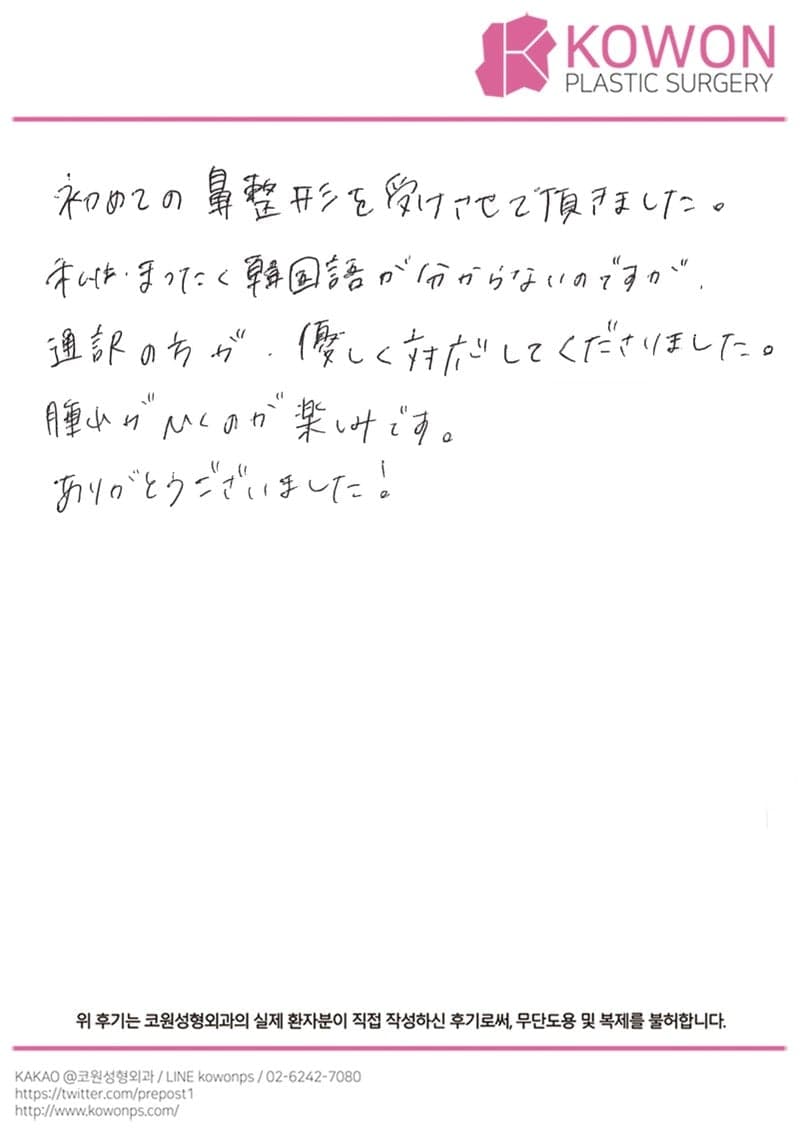 KOWON
PLASTIC SURGERY
初めての鼻整形を受けさせて頂きました。
私は、まったく韓国語が分からないのですが、
通訳の方が、優しく対応してくださりました。
腫れがひくのが楽しみです。
ありがとうございました!
위 후기는 코원성형외과의 실제 환자분이 직접 작성하신 후기로써, 무단도용 및 복제를 불허합니다.
KAKAO @코원성형외과 / LINE kowonps / 02-6242-7080
https://twitter.com/prepost1
http://www.kowonps.com/